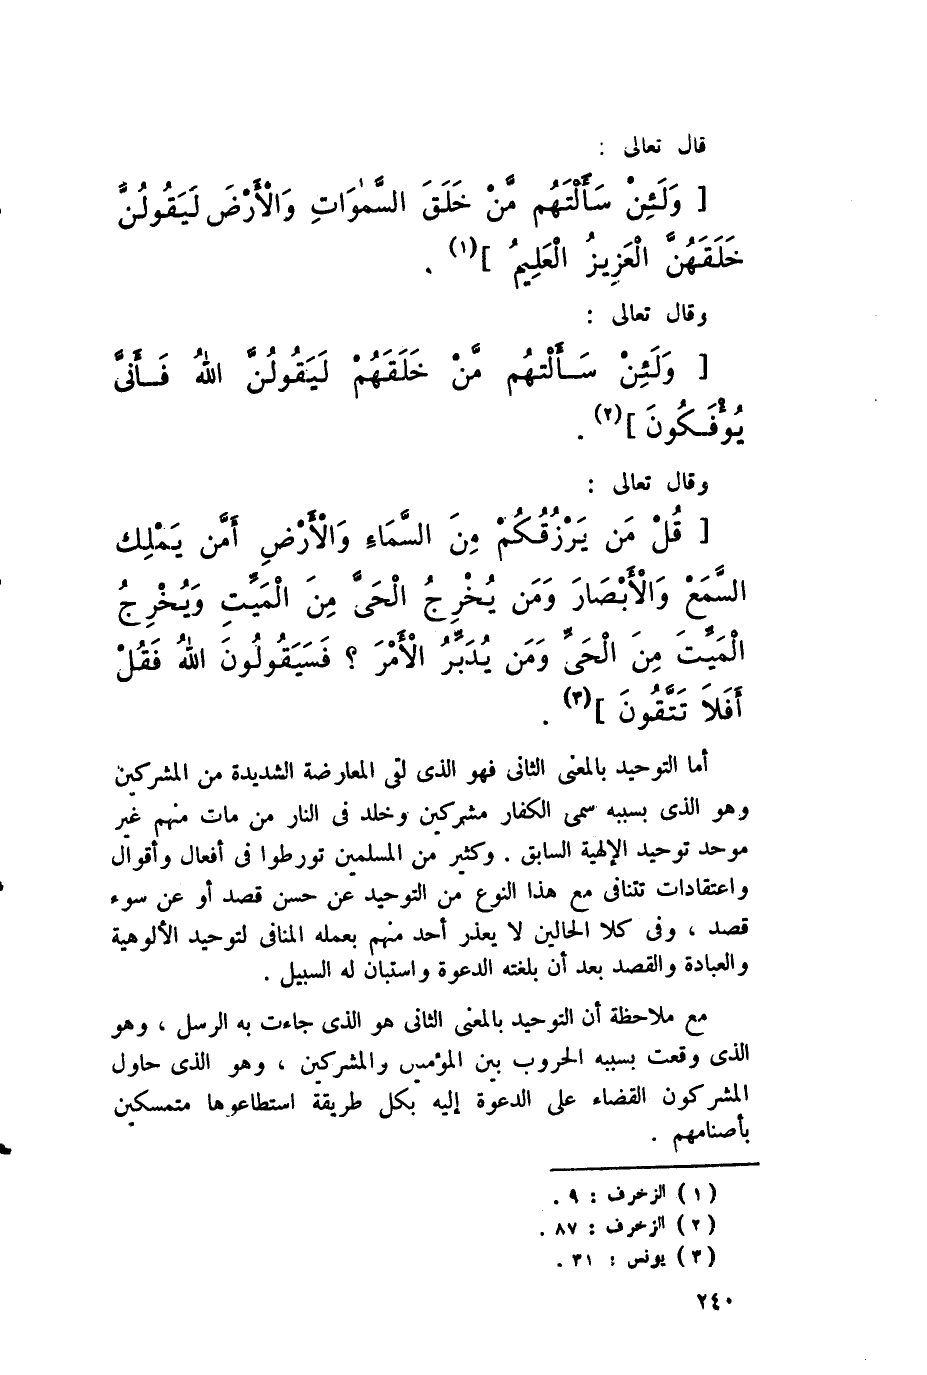 قال تعالى :
[ وَلَئِنْ سَأَلْتَهُم مَّنْ خَلَقَ السَّمٰوَاتِ وَالْأَرْضَ لَيَقُولُنَّ
خَلَقَهُنَّ الْعَزِيزُ الْعَلِيمُ ](١) .
وقال تعالى :
[ وَلَئِنْ سَـأَلْتهُم مَّنْ خَلَقَهُمْ لَيَقُولُنَّ اللهُ فَـأَنَّىٰ
يُوْفَـكُونَ ](٢) .
وقال تعالى :
[ قُلْ مَن يَرْزُقُـكُمْ مِنَ السَّمَاءِ وَالْأَرْضِ أَمَّن يَمْلِك
السَّمَعْ وَالْأَبْصَارَ وَمَن يُخْرِجُ الْحَىَّ مِنَ الْمَيِّتِ وَيُخْرِجُ
الْمَيِّتَ مِنَ الْحَىِّ وَمَن يُدَبِّرُ الْأَمْرَ ؟ فَسَيَقُولُونَ اللهُ فَقُلْ
أَفَلاَ تَتَّقُونَ ](٣) .
أما التوحيد بالمعنى الثانى فهو الذى لقى المعارضة الشديدة من المشركين
وهو الذى بسببه سمى الكفار مشركين وخلد فى النار من مات منهم غير
موحد توحيد الإلهية السابق . وكثير من المسلمين تورطوا فى أفعال وأقوال
واعتقادات تتنافى مع هذا النوع من التوحيد عن حسن قصد أو عن سوء
قصد ، وفى كلا الحالين لا يعذر أحد منهم بعمله المنافى لتوحيد الألوهية
والعبادة والقصد بعد أن بلغته الدعوة واستبان له السبيل .
مع ملاحظة أن التوحيد بالمعنى الثانى هو الذى جاءت به الرسل ، وهو
الذى وقعت بسببه الحروب بين المؤمنين والمشركين ، وهو الذى حاول
المشركون القضاء على الدعوة إليه بكل طريقة استطاعوها متمسكين
بأصنامهم .
(١) الزخرف : ٩ .
(٢) الزخرف : ٨٧ .
(٣) يونس : ٣١ .
٢٤٠